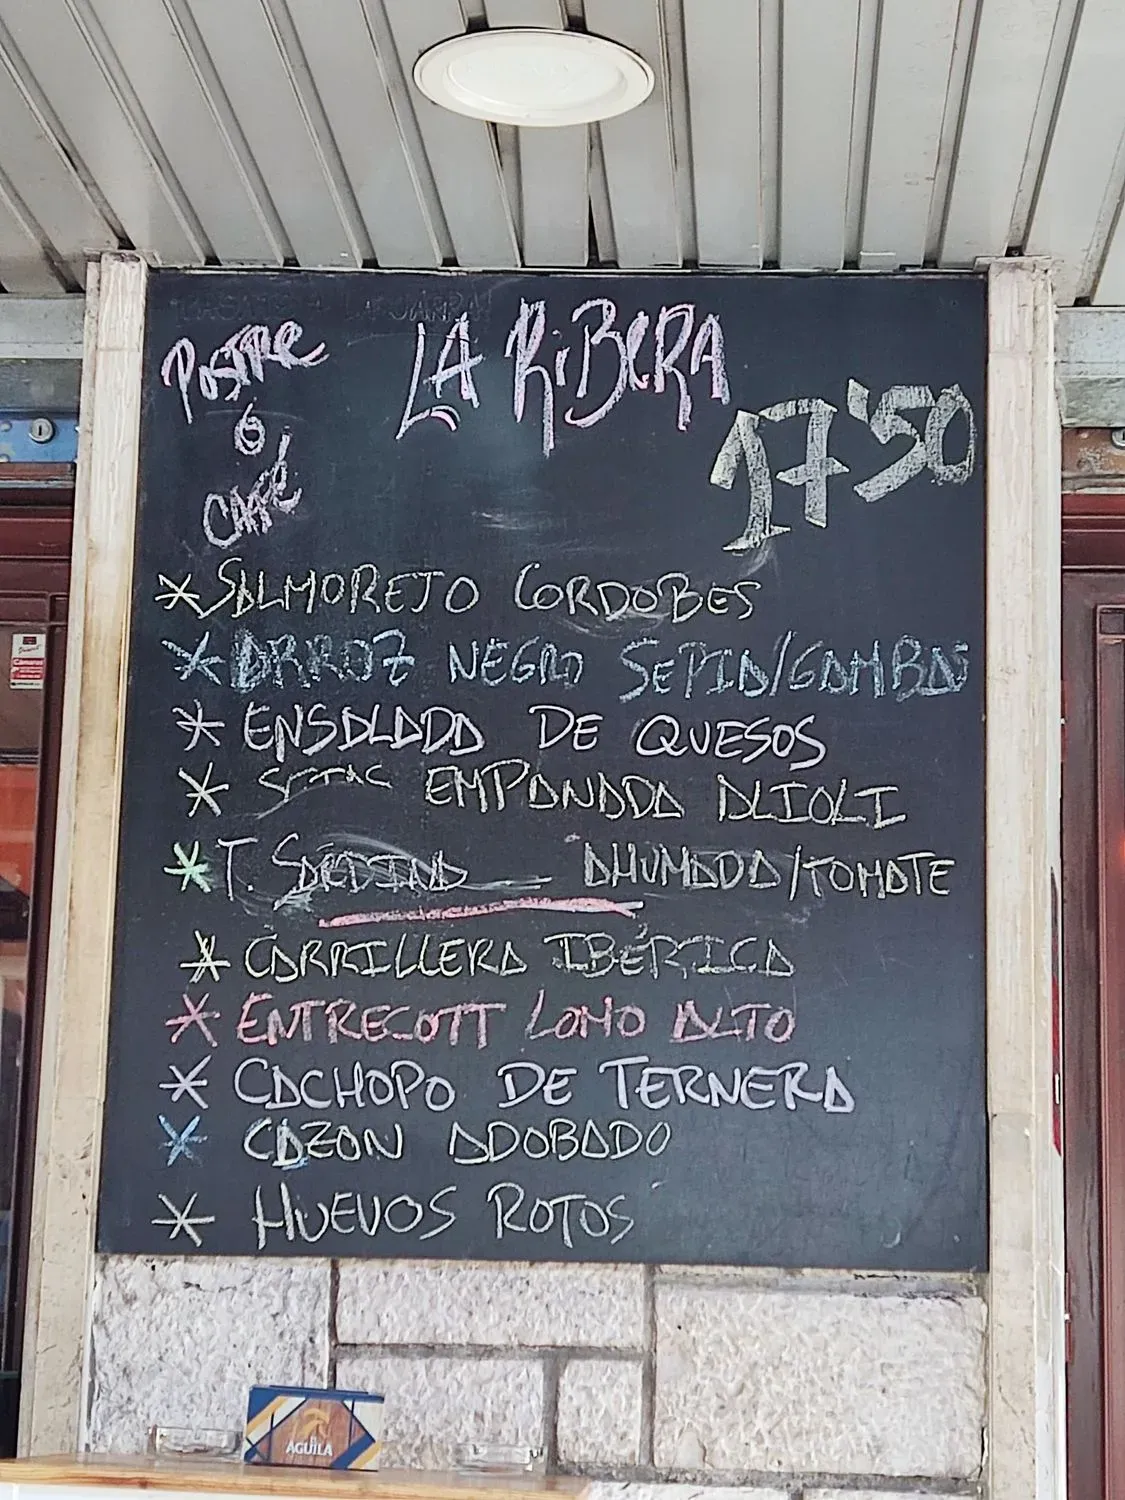 LA RiBERA
POSTRE
ó
CAFÉ
17'50
* SALMOREJO CORDOBES
* ARROZ NEGRO SEPIA/GAMBAS
* ENSALADA DE QUESOS
* SETAS EMPANADA ALIOLI
* T. SARDINA AHUMADA/TOMATE
* CARRILLERA IBÉRICA
* ENTRECOTT LOMO ALTO
* CACHOPO DE TERNERA
* CAZON ADOBADO
* HUEVOS ROTOS
AGUILA